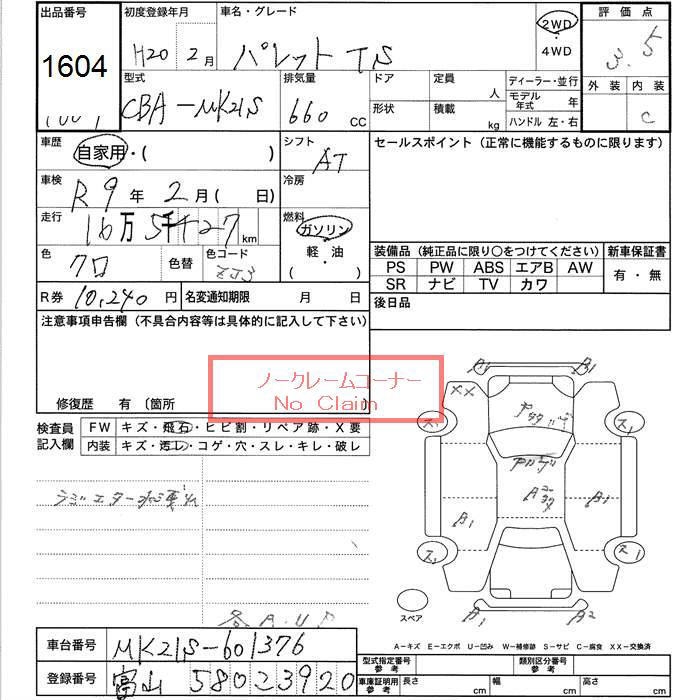 出品番号 初度登録年月 車名・グレード 2WD・4WD 評価点
1604 H20 2月 パレット TS 3.5
型式 排気量 ドア 定員 人 ディーラー・並行 外装 内装
CBA-MK21S 660 CC 形状 積載 kg モデル年式 年 C
ハンドル 左・右
車歴 シフト セールスポイント(正常に機能するものに限ります)
自家用・( ) AT
車検 R9年 2月( 日) 冷房
走行 16万5千127km 燃料
ガソリン
軽・油
( )
色 クロ 色替 色コード ZJ3
装備品(純正品に限り○をつけてください) 新車保証書
PS PW ABS エアB AW 有・無
SR ナビ TV カワ
R券 10,240円 名変通知期限 月 日 後日品
注意事項申告欄(不具合内容等は具体的に記入して下さい)
ノークレームコーナー
No Claim
修復歴 有 〔箇所
検査員記入欄 FW キズ・飛石・ヒビ割・リペア跡・X要
内装 キズ・汚レ・コゲ・穴・スレ・キレ・破レ
ラジエター
各A.U
A1 B1
XX
ス1 ス1
B1 B1
ス1 ス1
スペア B1 A2
A-キズ E-エクボ U-凹み W-補修跡 S-サビ C-腐食 XX-交換済
車台番号 MK21S-601376
登録番号 富山 580 こ 3920
型式指定番号 参考 類別区分番号 参考
車庫証明用 参考 長さ cm 幅 cm 高さ cm